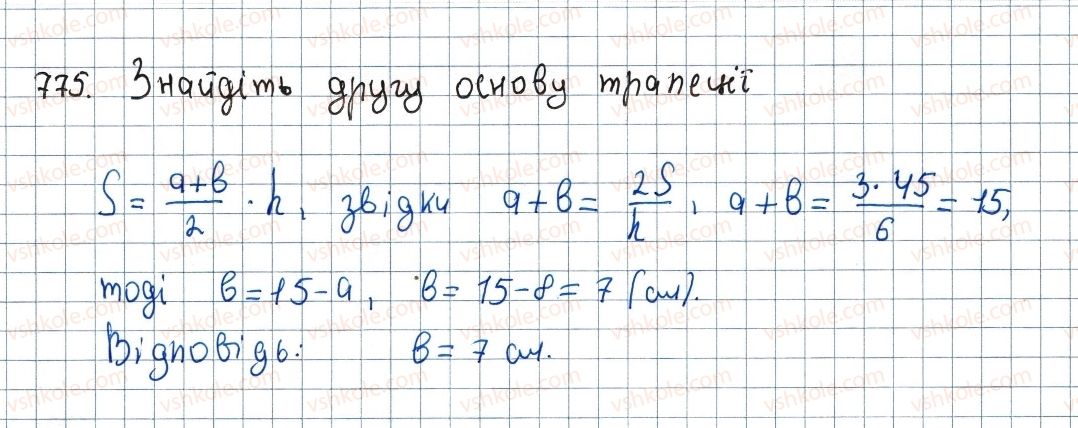 775. Знайдіть другу основу трапеції
S = a+b/2 · h, звідки a+b = 2S/h, a+b = 3·45/6 = 15,
тоді b = 15-a, b = 15-8 = 7 (см).
Відповідь: b = 7 см.